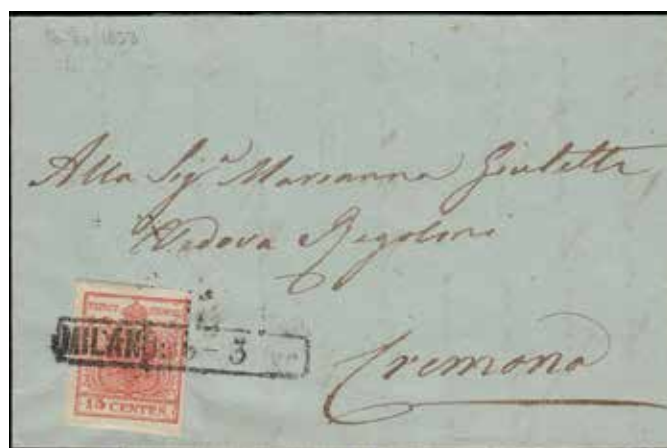 1853
Alla Sig.ª Marianna Giuletti
Vedova Regoloni
MILANO 5-3
15 CENTES.
Cremona